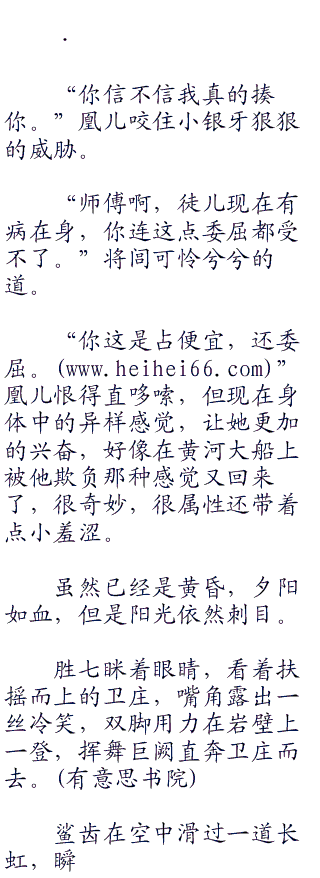 .
“你信不信我真的揍
你。”凰儿咬住小银牙狠狠
的威胁。
“师傅啊，徒儿现在有
病在身，你连这点委屈都受
不了。”将闾可怜兮兮的
道。
“你这是占便宜，还委
屈。(www.heihei66.com)”
凰儿恨得直哆嗦，但现在身
体中的异样感觉，让她更加
的兴奋，好像在黄河大船上
被他欺负那种感觉又回来
了，很奇妙，很属性还带着
点小羞涩。
虽然已经是黄昏，夕阳
如血，但是阳光依然刺目。
胜七眯着眼睛，看着扶
摇而上的卫庄，嘴角露出一
丝冷笑，双脚用力在岩壁上
一登，挥舞巨阙直奔卫庄而
去。(有意思书院)
鲨齿在空中滑过一道长
虹，瞬